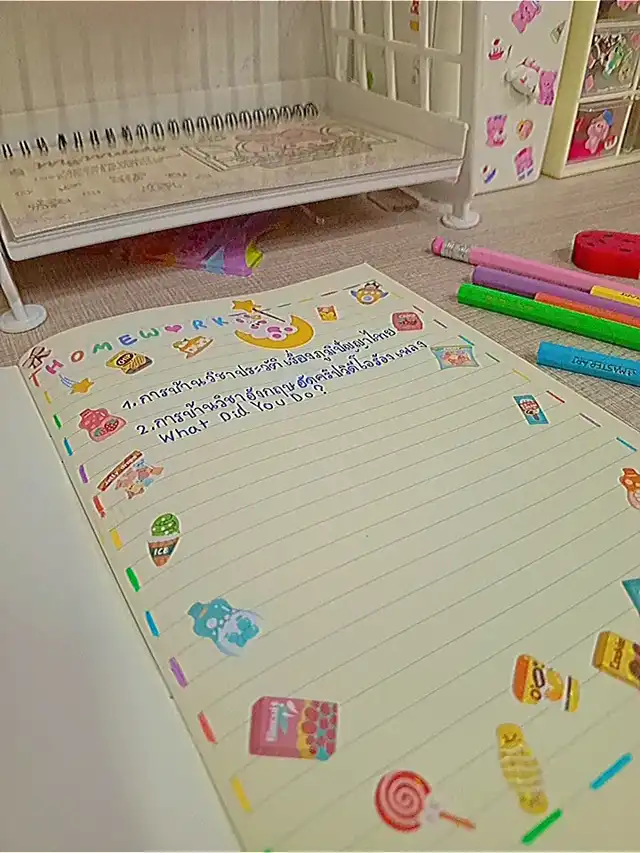 HOMEWORK
1. การบ้านวิชาประวัติเรื่องภูมิปัญญาไทย
2. การบ้านวิชาอังกฤษอัดคริปวิดีโอร้องเพลง
What Did You Do?
ICE
MASTER ART